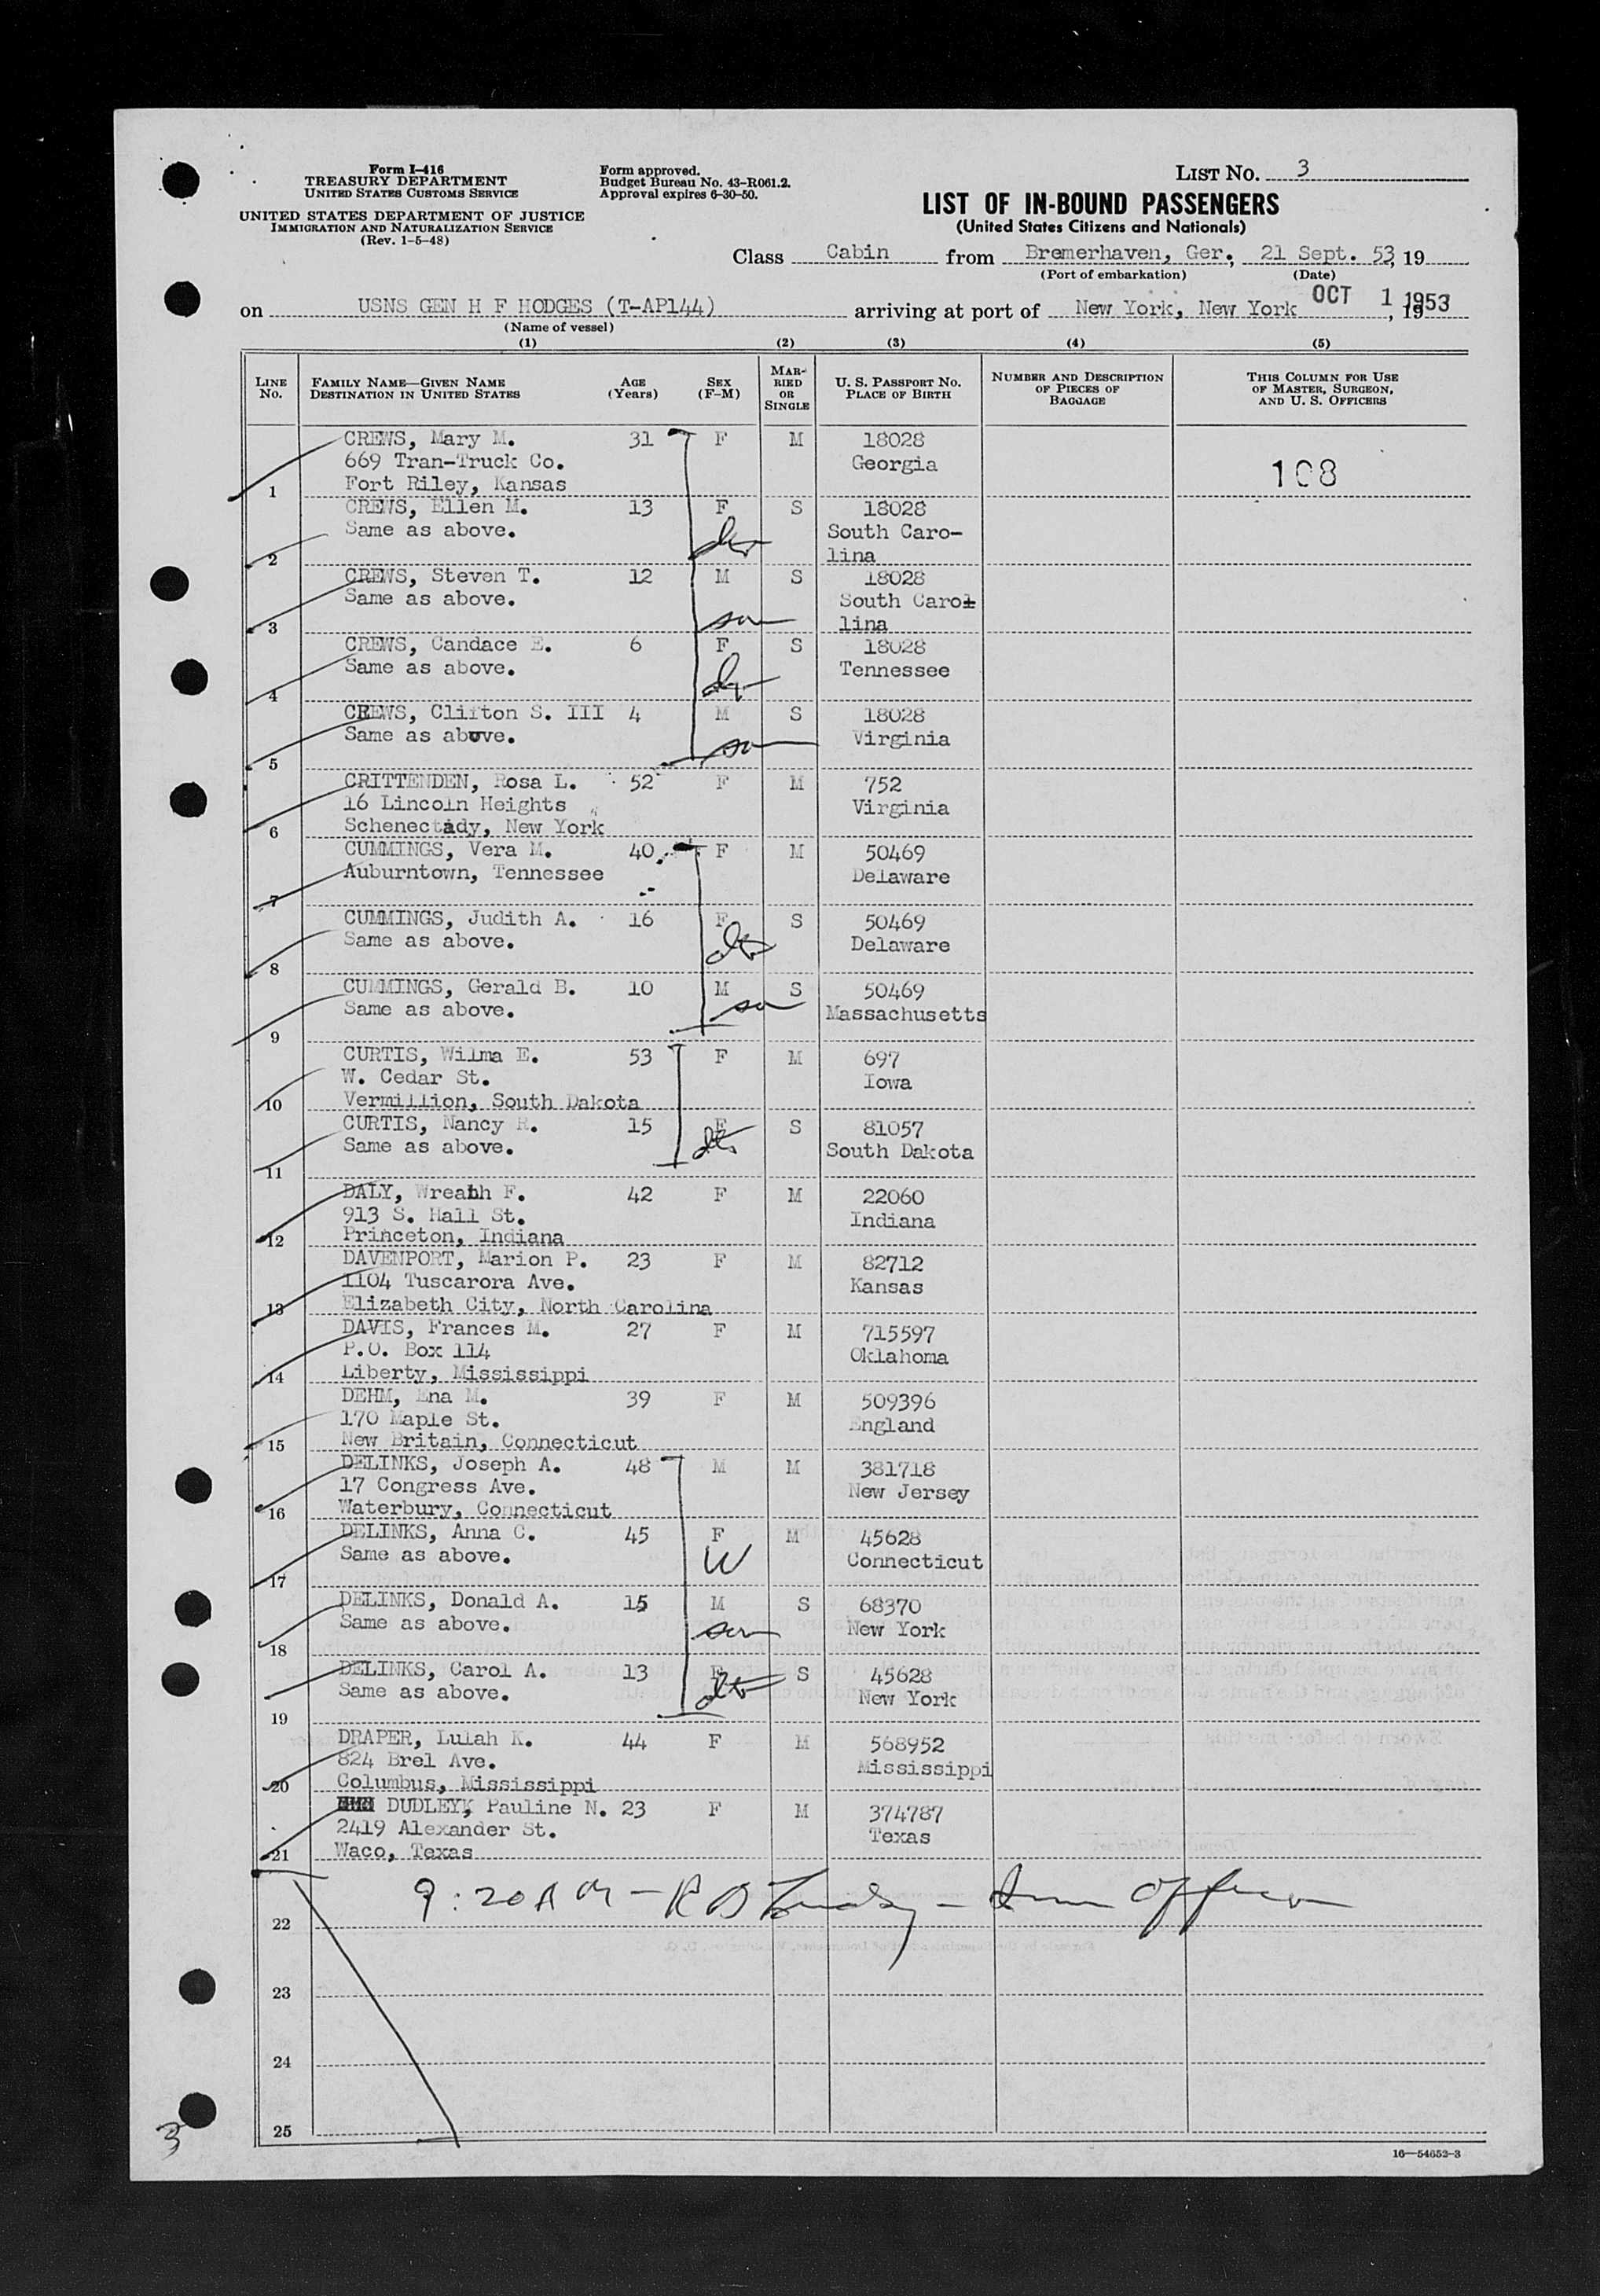 Form I-416
TREASURY DEPARTMENT
UNITED STATES CUSTOMS SERVICE
UNITED STATES DEPARTMENT OF JUSTICE
IMMIGRATION AND NATURALIZATION SERVICE
(Rev. 1-5-48)
Form approved.
Budget Bureau No. 43-R061.2.
Approval expires 6-30-50.
LIST NO. 3
LIST OF IN-BOUND PASSENGERS
(United States Citizens and Nationals)
Class Cabin from Bremerhaven, Ger., 21 Sept. 53, 19
(Port of embarkation) (Date)
on USNS GEN H F HODGES (T-AP144) arriving at port of New York, New York OCT 1 1953, 19
(Name of vessel)
(1) (2) (3) (4) (5)
LINE NO. FAMILY NAME—GIVEN NAME DESTINATION IN UNITED STATES AGE (YEARS) SEX (F-M) MARRIED OR SINGLE U. S. PASSPORT NO. PLACE OF BIRTH NUMBER AND DESCRIPTION OF PIECES OF BAGGAGE THIS COLUMN FOR USE OF MASTER, SURGEON, AND U. S. OFFICERS
CREWS, Mary M. 31 F M 18028
669 Tran-Truck Co. Georgia 108
1 Fort Riley, Kansas
CREWS, Ellen M. 13 F S 18028
Same as above. South Caro-
2 lina
CREWS, Steven T. 12 M S 18028
Same as above. South Caro
3 son lina
CREWS, Candace E. 6 F S 18028
Same as above. Tennessee
4
CREWS, Clifton S. III 4 M S 18028
Same as above. Virginia
5 son
CRITTENDEN, Rosa L. 52 F M 752
16 Lincoln Heights Virginia
6 Schenectady, New York
CUMMINGS, Vera M. 40 F M 50469
Auburntown, Tennessee Delaware
7
CUMMINGS, Judith A. 16 F S 50469
Same as above. Delaware
8
CUMMINGS, Gerald B. 10 M S 50469
Same as above. son Massachusetts
9
CURTIS, Wilma E. 53 F M 697
W. Cedar St. Iowa
10 Vermillion, South Dakota
CURTIS, Nancy R. 15 F S 81057
Same as above. South Dakota
11
DALY, Wreahh F. 42 F M 22060
913 S. Hall St. Indiana
12 Princeton, Indiana
DAVENPORT, Marion P. 23 F M 82712
1104 Tuscarora Ave. Kansas
13 Elizabeth City, North Carolina
DAVIS, Frances M. 27 F M 715597
P.O. Box 114 Oklahoma
14 Liberty, Mississippi
DEHM, Ena M. 39 F M 509396
170 Maple St. England
15 New Britain, Connecticut
DELINKS, Joseph A. 48 M M 381718
17 Congress Ave. New Jersey
16 Waterbury, Connecticut
DELINKS, Anna C. 45 F M 45628
Same as above. W Connecticut
17
DELINKS, Donald A. 15 M S 68370
Same as above. son New York
18
DELINKS, Carol A. 13 F S 45628
Same as above. New York
19
DRAPER, Lulah K. 44 F M 568952
824 Brel Ave. Mississippi
20 Columbus, Mississippi
DUDLEY, Pauline N. 23 F M 374787
2419 Alexander St. Texas
21 Waco, Texas
9:20 AM - R B - Imm Officer
22
23
24
25
3
16—54652-3